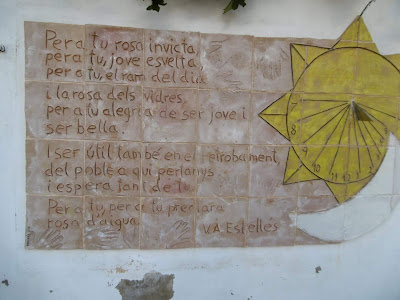 Per a tu, rosa invicta
per a tu, jove esvelta
per a tu, el ram del dia
i la rosa dels vidres,
per a tu alegria de ser jove i
ser bella.
I ser útil també en el retrobament,
del poble a qui pertanys
i espera tant de tu.
Per a tu, per a tu per clara
rosa d'aigua.
V.A Estellés
8
9
10
11
12
1
2
3